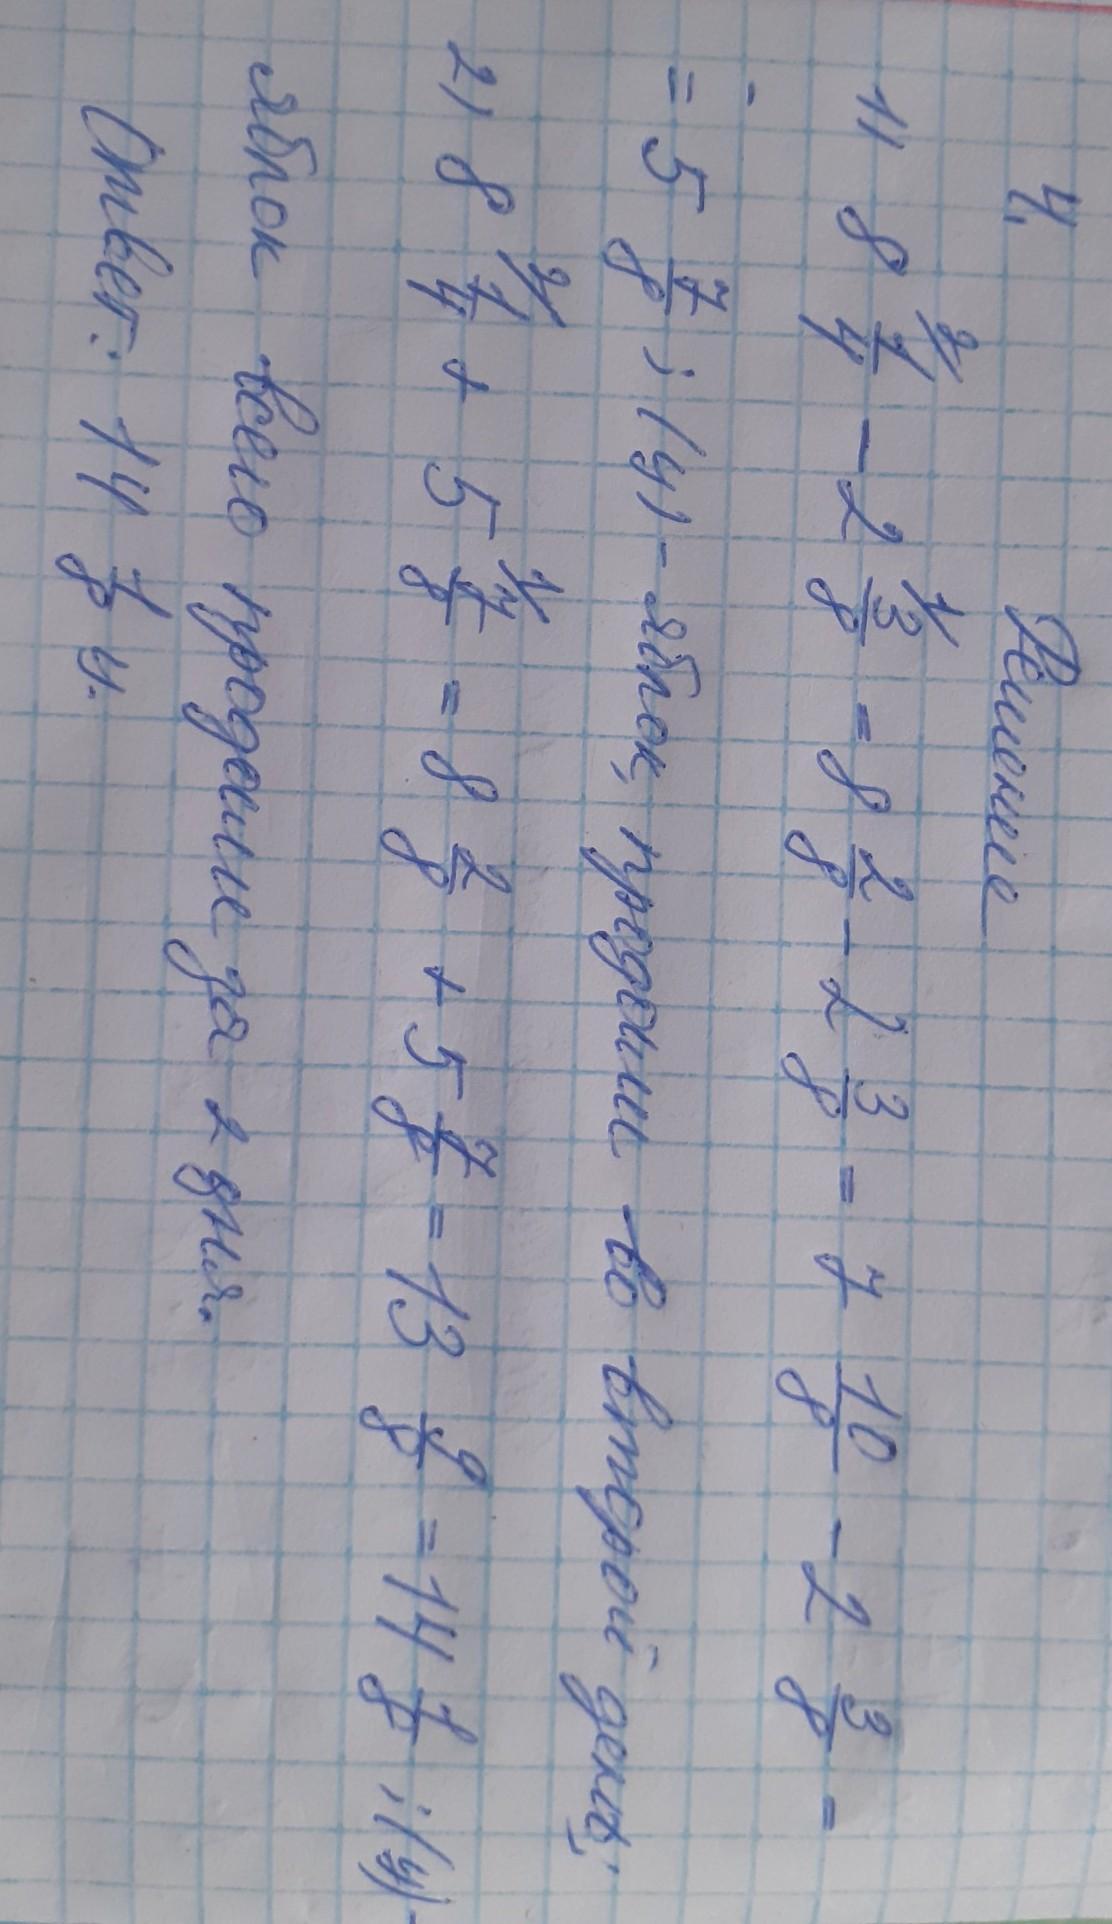 4.
Решение
1) 8 1/4 2/ - 2 3/8 1/ = 8 2/8 - 2 3/8 = 7 10/8 - 2 3/8 =
= 5 7/8 ; (ц) - яблок, продали во второй день;
2) 8 1/4 2/ + 5 7/8 1/ = 8 2/8 + 5 7/8 = 13 9/8 = 14 1/8 ; (ц) -
яблок всего продали за 2 дня.
Ответ: 14 1/8 ц.